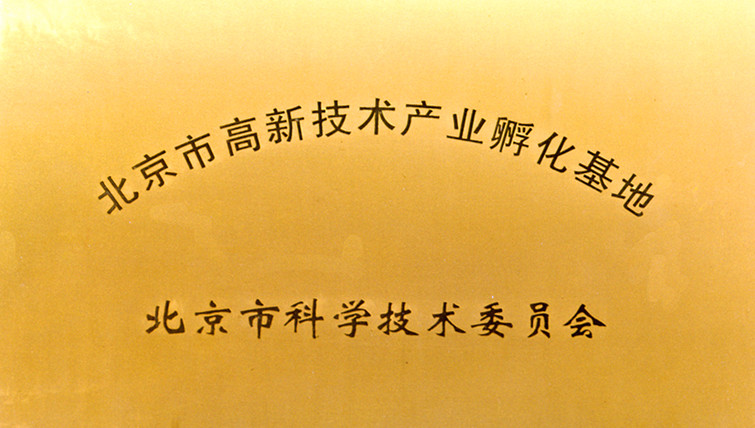 北京市高新技术产业孵化基地
北京市科学技术委员会